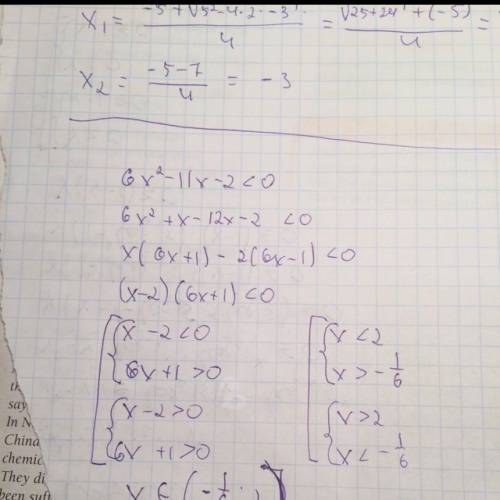 X₁ = (-5 + √5²-4·2·-3)/4 = (√25+24 + (-5))/4 =
X₂ = (-5-7)/4 = -3
6x²-11x-2<0
6x²+x-12x-2 <0
x(6x+1)-2(6x-1)<0
(x-2)(6x+1)<0
[{x-2<0 [{x<2
6x+1>0 x>-1/6
{x-2>0 {x>2
6x+1>0 x<-1/6
x ∈ (-1/6;
say
In N
China
chemic
They di
been suff